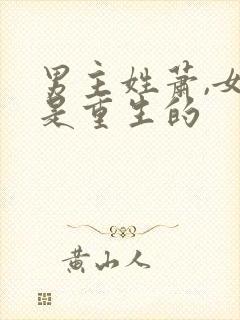 男主姓萧,女
是重生的
黄山人